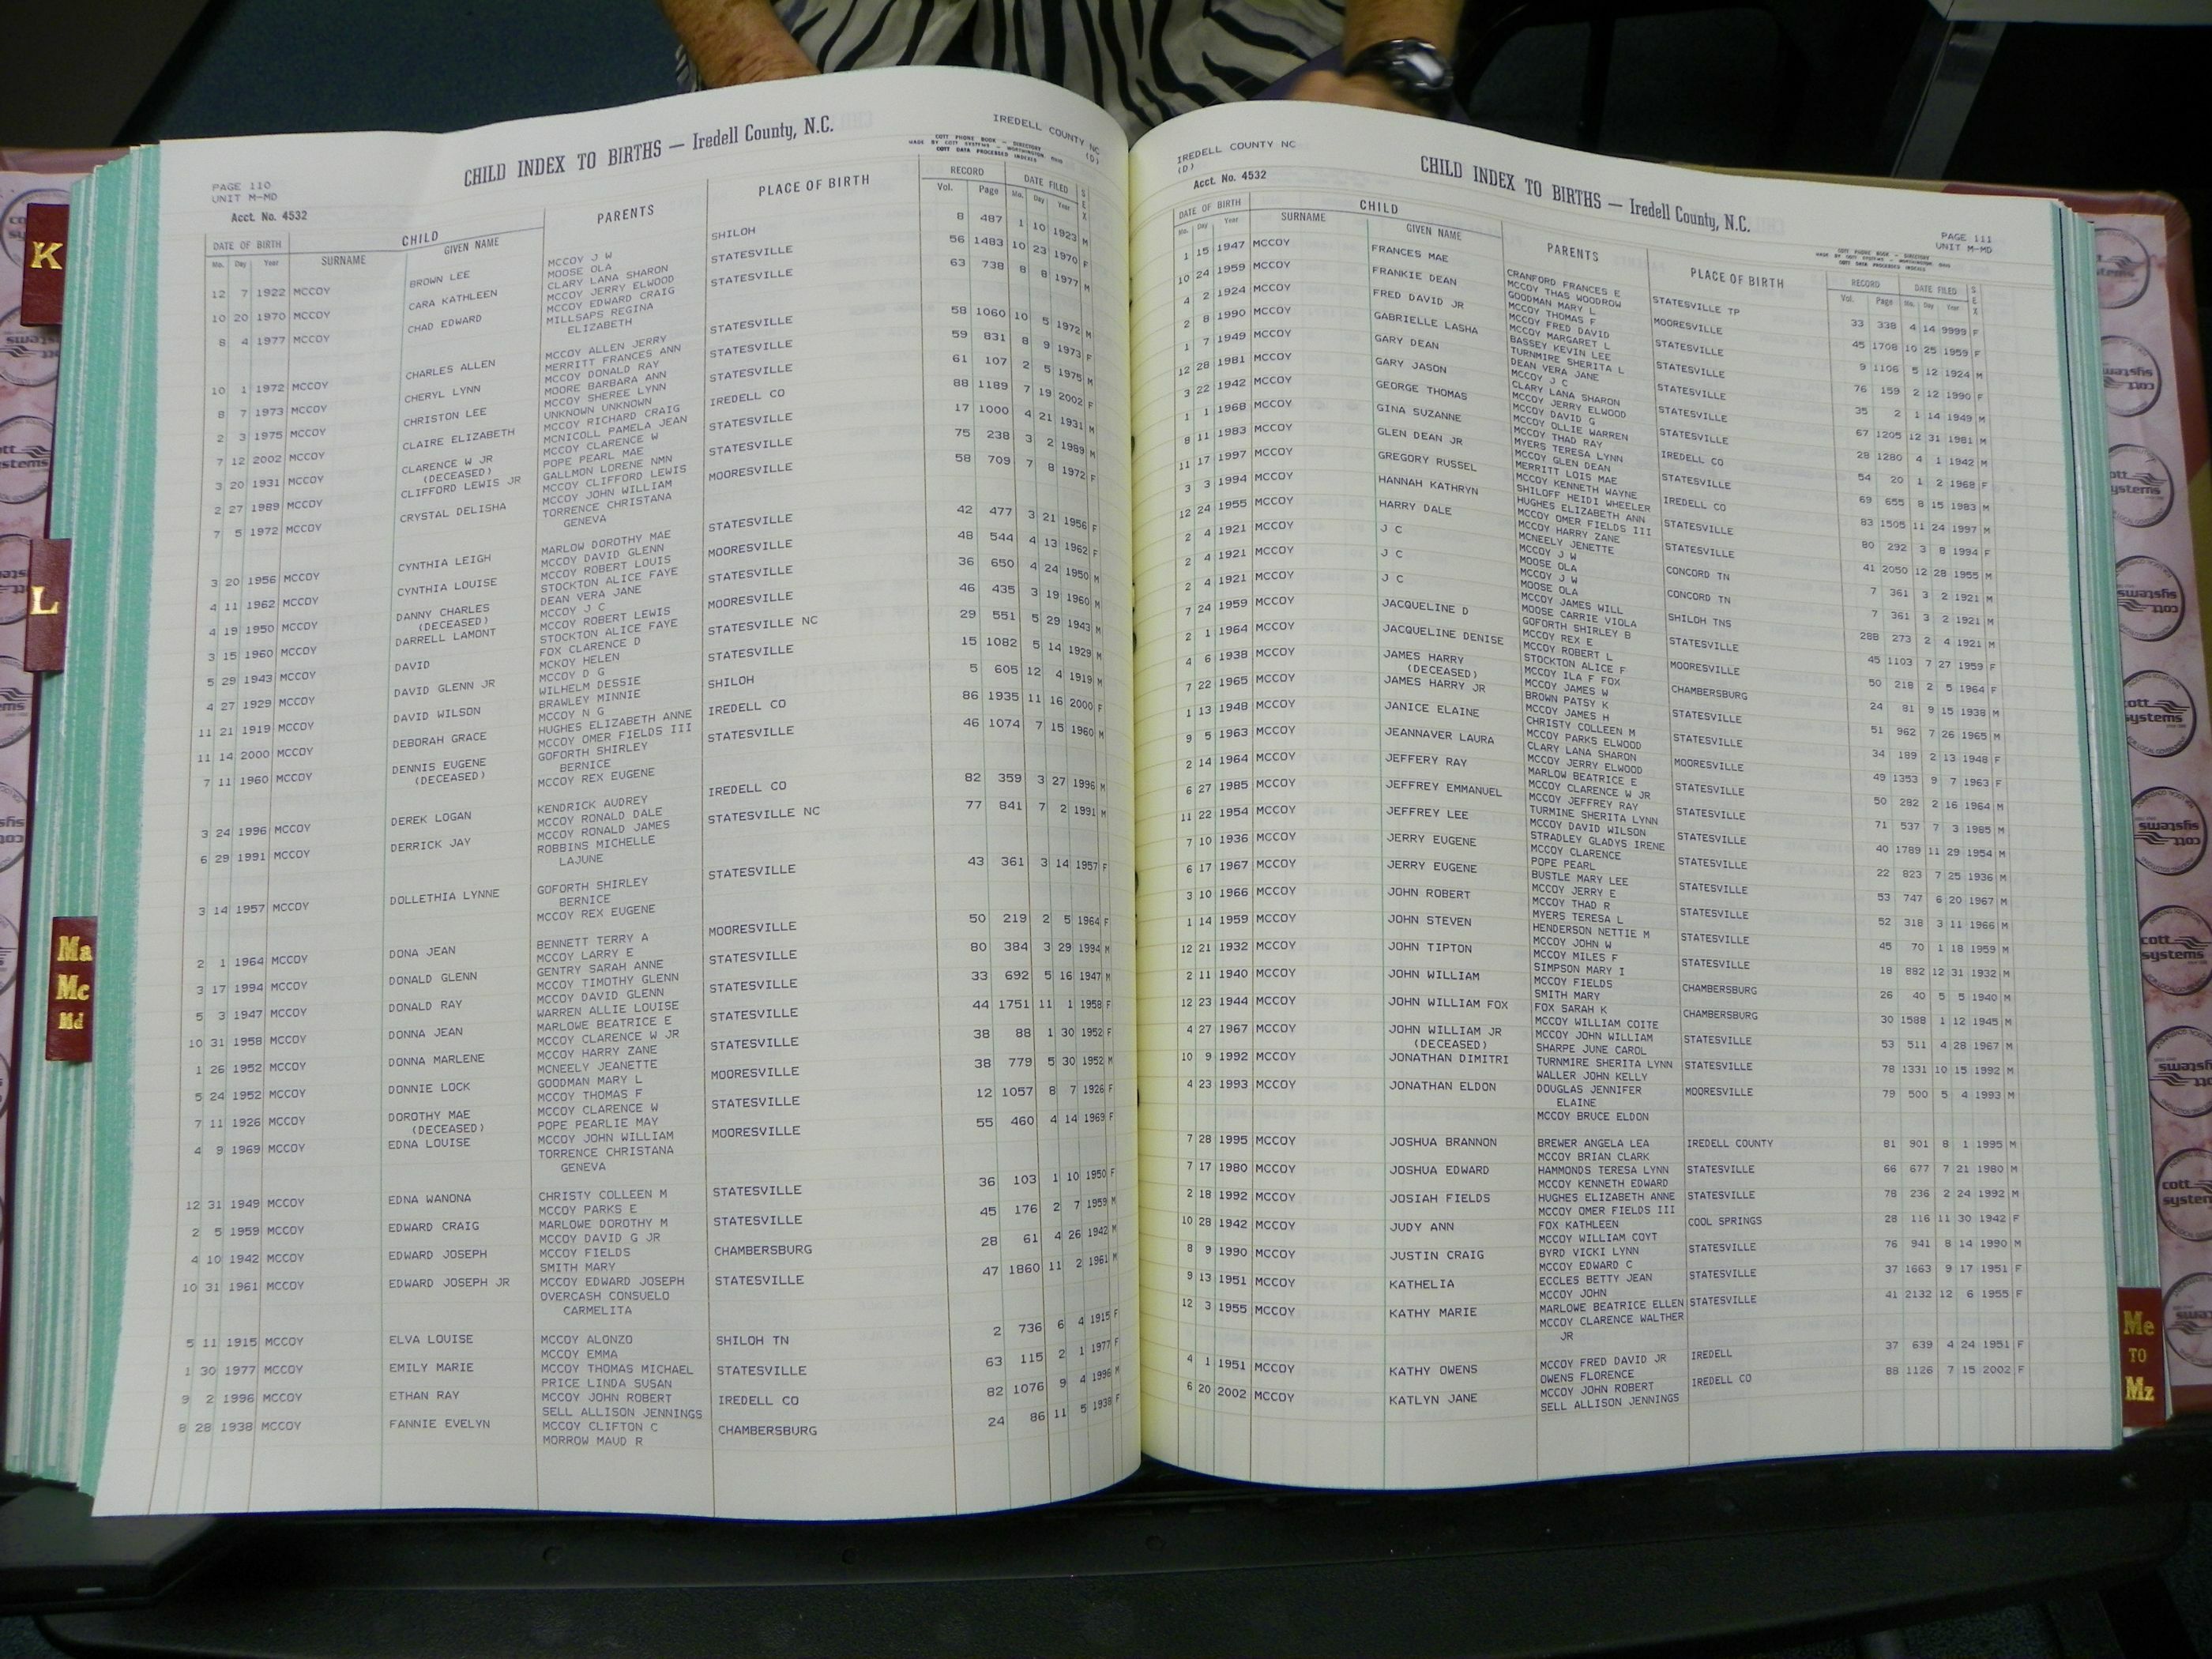 K
L
Ma
Mc
Md
PAGE 110
UNIT M-MD
Acct. No. 4532
CHILD INDEX TO BIRTHS — Iredell County, N.C.
IREDELL COUNTY NC
(D)
COTT PHONE BOOK - DIRECTORY
MADE BY COTT SYSTEMS - WORTHINGTON, OHIO
COTT DATA PROCESSED INDEXES
DATE OF BIRTH CHILD PARENTS PLACE OF BIRTH RECORD DATE FILED SEX
Mo. Day Year SURNAME GIVEN NAME Vol. Page Mo. Day Year
12 7 1922 MCCOY BROWN LEE MCCOY J W SHILOH 8 487 1 10 1923 M
MOOSE OLA
10 20 1970 MCCOY CARA KATHLEEN CLARY LANA SHARON STATESVILLE 56 1483 10 23 1970 F
MCCOY JERRY ELWOOD
8 4 1977 MCCOY CHAD EDWARD MCCOY EDWARD CRAIG STATESVILLE 63 738 8 8 1977 M
MILLSAPS REGINA
ELIZABETH
10 1 1972 MCCOY CHARLES ALLEN MCCOY ALLEN JERRY STATESVILLE 58 1060 10 5 1972 M
MERRITT FRANCES ANN
8 7 1973 MCCOY CHERYL LYNN MCCOY DONALD RAY STATESVILLE 59 831 8 9 1973 F
MOORE BARBARA ANN
2 3 1975 MCCOY CHRISTON LEE MCCOY SHEREE LYNN STATESVILLE 61 107 2 5 1975 M
UNKNOWN UNKNOWN
7 12 2002 MCCOY CLAIRE ELIZABETH MCCOY RICHARD CRAIG IREDELL CO 88 1189 7 19 2002 F
MCNICOLL PAMELA JEAN
3 20 1931 MCCOY CLARENCE W JR MCCOY CLARENCE W STATESVILLE 17 1000 4 21 1931 M
(DECEASED) POPE PEARL MAE
2 27 1989 MCCOY CLIFFORD LEWIS JR GALLMON LORENE NMN STATESVILLE 75 238 3 2 1989 M
MCCOY CLIFFORD LEWIS
7 5 1972 MCCOY CRYSTAL DELISHA MCCOY JOHN WILLIAM MOORESVILLE 58 709 7 8 1972 F
TORRENCE CHRISTANA
GENEVA
3 20 1956 MCCOY CYNTHIA LEIGH MARLOW DOROTHY MAE STATESVILLE 42 477 3 21 1956 F
MCCOY DAVID GLENN
4 11 1962 MCCOY CYNTHIA LOUISE MCCOY ROBERT LOUIS MOORESVILLE 48 544 4 13 1962 F
STOCKTON ALICE FAYE
4 19 1950 MCCOY DANNY CHARLES DEAN VERA JANE STATESVILLE 36 650 4 24 1950 M
(DECEASED) MCCOY J C
3 15 1960 MCCOY DARRELL LAMONT MCCOY ROBERT LEWIS MOORESVILLE 46 435 3 19 1960 M
STOCKTON ALICE FAYE
5 29 1943 MCCOY DAVID FOX CLARENCE D STATESVILLE NC 29 551 5 29 1943 M
MCKOY HELEN
4 27 1929 MCCOY DAVID GLENN JR MCCOY D G STATESVILLE 15 1082 5 14 1929 M
WILHELM DESSIE
11 21 1919 MCCOY DAVID WILSON BRAWLEY MINNIE SHILOH 5 605 12 4 1919 M
MCCOY N G
11 14 2000 MCCOY DEBORAH GRACE HUGHES ELIZABETH ANNE IREDELL CO 86 1935 11 16 2000 F
MCCOY OMER FIELDS III
7 11 1960 MCCOY DENNIS EUGENE GOFORTH SHIRLEY STATESVILLE 46 1074 7 15 1960 M
(DECEASED) BERNICE
MCCOY REX EUGENE
3 24 1996 MCCOY DEREK LOGAN KENDRICK AUDREY IREDELL CO 82 359 3 27 1996 M
MCCOY RONALD DALE
6 29 1991 MCCOY DERRICK JAY MCCOY RONALD JAMES STATESVILLE NC 77 841 7 2 1991 M
ROBBINS MICHELLE
LAJUNE
3 14 1957 MCCOY DOLLETHIA LYNNE GOFORTH SHIRLEY STATESVILLE 43 361 3 14 1957 F
BERNICE
MCCOY REX EUGENE
2 1 1964 MCCOY DONA JEAN BENNETT TERRY A MOORESVILLE 50 219 2 5 1964 F
MCCOY LARRY E
3 17 1994 MCCOY DONALD GLENN GENTRY SARAH ANNE STATESVILLE 80 384 3 29 1994 M
MCCOY TIMOTHY GLENN
5 3 1947 MCCOY DONALD RAY MCCOY DAVID GLENN STATESVILLE 33 692 5 16 1947 M
WARREN ALLIE LOUISE
10 31 1958 MCCOY DONNA JEAN MARLOWE BEATRICE E STATESVILLE 44 1751 11 1 1958 F
MCCOY CLARENCE W JR
1 26 1952 MCCOY DONNA MARLENE MCCOY HARRY ZANE STATESVILLE 38 88 1 30 1952 F
MCNEELY JEANETTE
5 24 1952 MCCOY DONNIE LOCK GOODMAN MARY L MOORESVILLE 38 779 5 30 1952 M
MCCOY THOMAS F
7 11 1926 MCCOY DOROTHY MAE MCCOY CLARENCE W STATESVILLE 12 1057 8 7 1926 F
(DECEASED) POPE PEARLIE MAY
4 9 1969 MCCOY EDNA LOUISE MCCOY JOHN WILLIAM MOORESVILLE 55 460 4 14 1969 F
TORRENCE CHRISTANA
GENEVA
12 31 1949 MCCOY EDNA WANONA CHRISTY COLLEEN M STATESVILLE 36 103 1 10 1950 F
MCCOY PARKS E
2 5 1959 MCCOY EDWARD CRAIG MARLOWE DOROTHY M STATESVILLE 45 176 2 7 1959 M
MCCOY DAVID G JR
4 10 1942 MCCOY EDWARD JOSEPH MCCOY FIELDS CHAMBERSBURG 28 61 4 26 1942 M
SMITH MARY
10 31 1961 MCCOY EDWARD JOSEPH JR MCCOY EDWARD JOSEPH STATESVILLE 47 1860 11 2 1961 M
OVERCASH CONSUELO
CARMELITA
5 11 1915 MCCOY ELVA LOUISE MCCOY ALONZO SHILOH TN 2 736 6 4 1915 F
MCCOY EMMA
1 30 1977 MCCOY EMILY MARIE MCCOY THOMAS MICHAEL STATESVILLE 63 115 2 1 1977 F
PRICE LINDA SUSAN
9 2 1996 MCCOY ETHAN RAY MCCOY JOHN ROBERT IREDELL CO 82 1076 9 4 1996 M
SELL ALLISON JENNINGS
8 28 1938 MCCOY FANNIE EVELYN MCCOY CLIFTON C CHAMBERSBURG 24 86 11 5 1938 F
MORROW MAUD R
IREDELL COUNTY NC
(D)
Acct. No. 4532
CHILD INDEX TO BIRTHS — Iredell County, N.C.
PAGE 111
UNIT M-MD
COTT PHONE BOOK - DIRECTORY
MADE BY COTT SYSTEMS - WORTHINGTON, OHIO
COTT DATA PROCESSED INDEXES
DATE OF BIRTH CHILD PARENTS PLACE OF BIRTH RECORD DATE FILED SEX
Mo. Day Year SURNAME GIVEN NAME Vol. Page Mo. Day Year
1 15 1947 MCCOY FRANCES MAE CRANFORD FRANCES E STATESVILLE TP 33 338 4 14 9999 F
MCCOY THAS WOODROW
10 24 1959 MCCOY FRANKIE DEAN GOODMAN MARY L MOORESVILLE 45 1708 10 25 1959 F
MCCOY THOMAS F
4 2 1924 MCCOY FRED DAVID JR MCCOY FRED DAVID STATESVILLE 9 1106 5 12 1924 M
MCCOY MARGARET L
2 8 1990 MCCOY GABRIELLE LASHA BASSEY KEVIN LEE STATESVILLE 76 159 2 12 1990 F
TURNMIRE SHERITA L
1 7 1949 MCCOY GARY DEAN DEAN VERA JANE STATESVILLE 35 2 1 14 1949 M
MCCOY J C
12 28 1981 MCCOY GARY JASON CLARY LANA SHARON STATESVILLE 67 1205 12 31 1981 M
MCCOY JERRY ELWOOD
3 22 1942 MCCOY GEORGE THOMAS MCCOY DAVID G IREDELL CO 28 1280 4 1 1942 M
MCCOY OLLIE WARREN
1 1 1968 MCCOY GINA SUZANNE MCCOY THAD RAY STATESVILLE 54 20 1 2 1968 F
MYERS TERESA LYNN
8 11 1983 MCCOY GLEN DEAN JR MCCOY GLEN DEAN IREDELL CO 69 655 8 15 1983 M
MERRITT LOIS MAE
11 17 1997 MCCOY GREGORY RUSSEL MCCOY KENNETH WAYNE STATESVILLE 83 1505 11 24 1997 M
SHILOFF HEIDI WHEELER
3 3 1994 MCCOY HANNAH KATHRYN HUGHES ELIZABETH ANN STATESVILLE 80 292 3 8 1994 F
MCCOY OMER FIELDS III
12 24 1955 MCCOY HARRY DALE MCCOY HARRY ZANE CONCORD TN 41 2050 12 28 1955 M
MCNEELY JENETTE
2 4 1921 MCCOY J C MCCOY J W CONCORD TN 7 361 3 2 1921 M
MOOSE OLA
2 4 1921 MCCOY J C MCCOY J W SHILOH TNS 7 361 3 2 1921 M
MOOSE OLA
2 4 1921 MCCOY J C MCCOY JAMES WILL STATESVILLE 28B 273 2 4 1921 M
MOOSE CARRIE VIOLA
7 24 1959 MCCOY JACQUELINE D GOFORTH SHIRLEY B MOORESVILLE 45 1103 7 27 1959 F
MCCOY REX E
2 1 1964 MCCOY JACQUELINE DENISE MCCOY ROBERT L CHAMBERSBURG 50 218 2 5 1964 F
STOCKTON ALICE F
4 6 1938 MCCOY JAMES HARRY MCCOY ILA F FOX STATESVILLE 24 81 9 15 1938 M
(DECEASED) MCCOY JAMES W
7 22 1965 MCCOY JAMES HARRY JR BROWN PATSY K STATESVILLE 51 962 7 26 1965 M
MCCOY JAMES H
1 13 1948 MCCOY JANICE ELAINE CHRISTY COLLEEN M MOORESVILLE 34 189 2 13 1948 F
MCCOY PARKS ELWOOD
9 5 1963 MCCOY JEANNAVER LAURA CLARY LANA SHARON STATESVILLE 49 1353 9 7 1963 F
MCCOY JERRY ELWOOD
2 14 1964 MCCOY JEFFERY RAY MARLOW BEATRICE E STATESVILLE 50 282 2 16 1964 M
MCCOY CLARENCE W JR
6 27 1985 MCCOY JEFFREY EMMANUEL MCCOY JEFFREY RAY STATESVILLE 71 537 7 3 1985 M
TURMINE SHERITA LYNN
11 22 1954 MCCOY JEFFREY LEE MCCOY DAVID WILSON STATESVILLE 40 1789 11 29 1954 M
STRADLEY GLADYS IRENE
7 10 1936 MCCOY JERRY EUGENE MCCOY CLARENCE STATESVILLE 22 823 7 25 1936 M
POPE PEARL
6 17 1967 MCCOY JERRY EUGENE BUSTLE MARY LEE STATESVILLE 53 747 6 20 1967 M
MCCOY JERRY E
3 10 1966 MCCOY JOHN ROBERT MCCOY THAD R STATESVILLE 52 318 3 11 1966 M
MYERS TERESA L
1 14 1959 MCCOY JOHN STEVEN HENDERSON NETTIE M STATESVILLE 45 70 1 18 1959 M
MCCOY JOHN W
12 21 1932 MCCOY JOHN TIPTON MCCOY MILES F STATESVILLE 18 882 12 31 1932 M
SIMPSON MARY I
2 11 1940 MCCOY JOHN WILLIAM MCCOY FIELDS CHAMBERSBURG 26 40 5 5 1940 M
SMITH MARY
12 23 1944 MCCOY JOHN WILLIAM FOX FOX SARAH K CHAMBERSBURG 30 1588 1 12 1945 M
MCCOY WILLIAM COITE
4 27 1967 MCCOY JOHN WILLIAM JR MCCOY JOHN WILLIAM STATESVILLE 53 511 4 28 1967 M
(DECEASED) SHARPE JUNE CAROL
10 9 1992 MCCOY JONATHAN DIMITRI TURNMIRE SHERITA LYNN STATESVILLE 78 1331 10 15 1992 M
WALLER JOHN KELLY
4 23 1993 MCCOY JONATHAN ELDON DOUGLAS JENNIFER MOORESVILLE 79 500 5 4 1993 M
ELAINE
MCCOY BRUCE ELDON
7 28 1995 MCCOY JOSHUA BRANNON BREWER ANGELA LEA IREDELL COUNTY 81 901 8 1 1995 M
MCCOY BRIAN CLARK
7 17 1980 MCCOY JOSHUA EDWARD HAMMONDS TERESA LYNN STATESVILLE 66 677 7 21 1980 M
MCCOY KENNETH EDWARD
2 18 1992 MCCOY JOSIAH FIELDS HUGHES ELIZABETH ANNE STATESVILLE 78 236 2 24 1992 M
MCCOY OMER FIELDS III
10 28 1942 MCCOY JUDY ANN FOX KATHLEEN COOL SPRINGS 28 116 11 30 1942 F
MCCOY WILLIAM COYT
8 9 1990 MCCOY JUSTIN CRAIG BYRD VICKI LYNN STATESVILLE 76 941 8 14 1990 M
MCCOY EDWARD C
9 13 1951 MCCOY KATHELIA ECCLES BETTY JEAN STATESVILLE 37 1663 9 17 1951 F
MCCOY JOHN
12 3 1955 MCCOY KATHY MARIE MARLOWE BEATRICE ELLEN STATESVILLE 41 2132 12 6 1955 F
MCCOY CLARENCE WALTHER
JR
4 1 1951 MCCOY KATHY OWENS MCCOY FRED DAVID JR IREDELL 37 639 4 24 1951 F
OWENS FLORENCE
6 20 2002 MCCOY KATLYN JANE MCCOY JOHN ROBERT IREDELL CO 88 1126 7 15 2002 F
SELL ALLISON JENNINGS
Me
TO
Mz
cott
systems